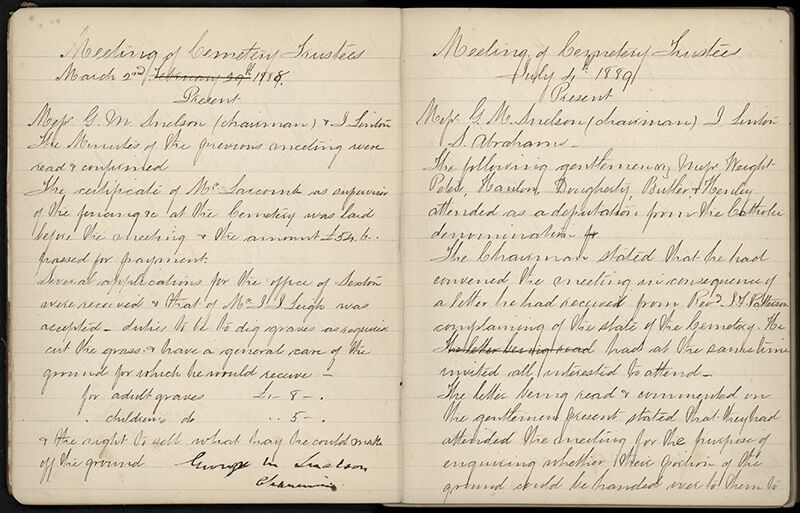 Meeting of Cemetery Trustees
March 2nd February 29th 1888.
Present
Messrs G. M. Snelson (Chairman) & J. Linton
The Minutes of the previous meeting were
read & confirmed
The certificate of Mr Larcomb as supervisor
of the fencing &c at the Cemetery was laid
before the meeting & the amount £54. 6.
passed for payment.
Several applications for the office of Sexton
were received & that of Mr J. J. Leigh was
accepted - duties to be to dig graves as required
cut the grass & have a general care of the
ground for which he would receive -
for adult graves £ - 8 - .
" childrens do .. 5 - .
& the right to sell what hay he could make
off the ground George M Snelson
Chairman
Meeting of Cemetery Trustees
July 4th 1889
Present
Messrs G. M. Snelson (Chairman) J. Linton
S. Abrahams.
The following gentlemen Messrs Weight
Peters, Hanlon, Dougherty, Butler & Henley
attended as a deputation from the Catholic
denomination
The Chairman stated that he had
convened the meeting in consequence of
a letter he had received from Revd Patterson
complaining of the state of the Cemetery. He
The letter being read had at the same time
invited all interested to attend -
The letter being read & commented on
the gentlemen present stated that they had
attended the meeting for the purpose of
enquiring whether their portion of the
ground could be handed over to them to